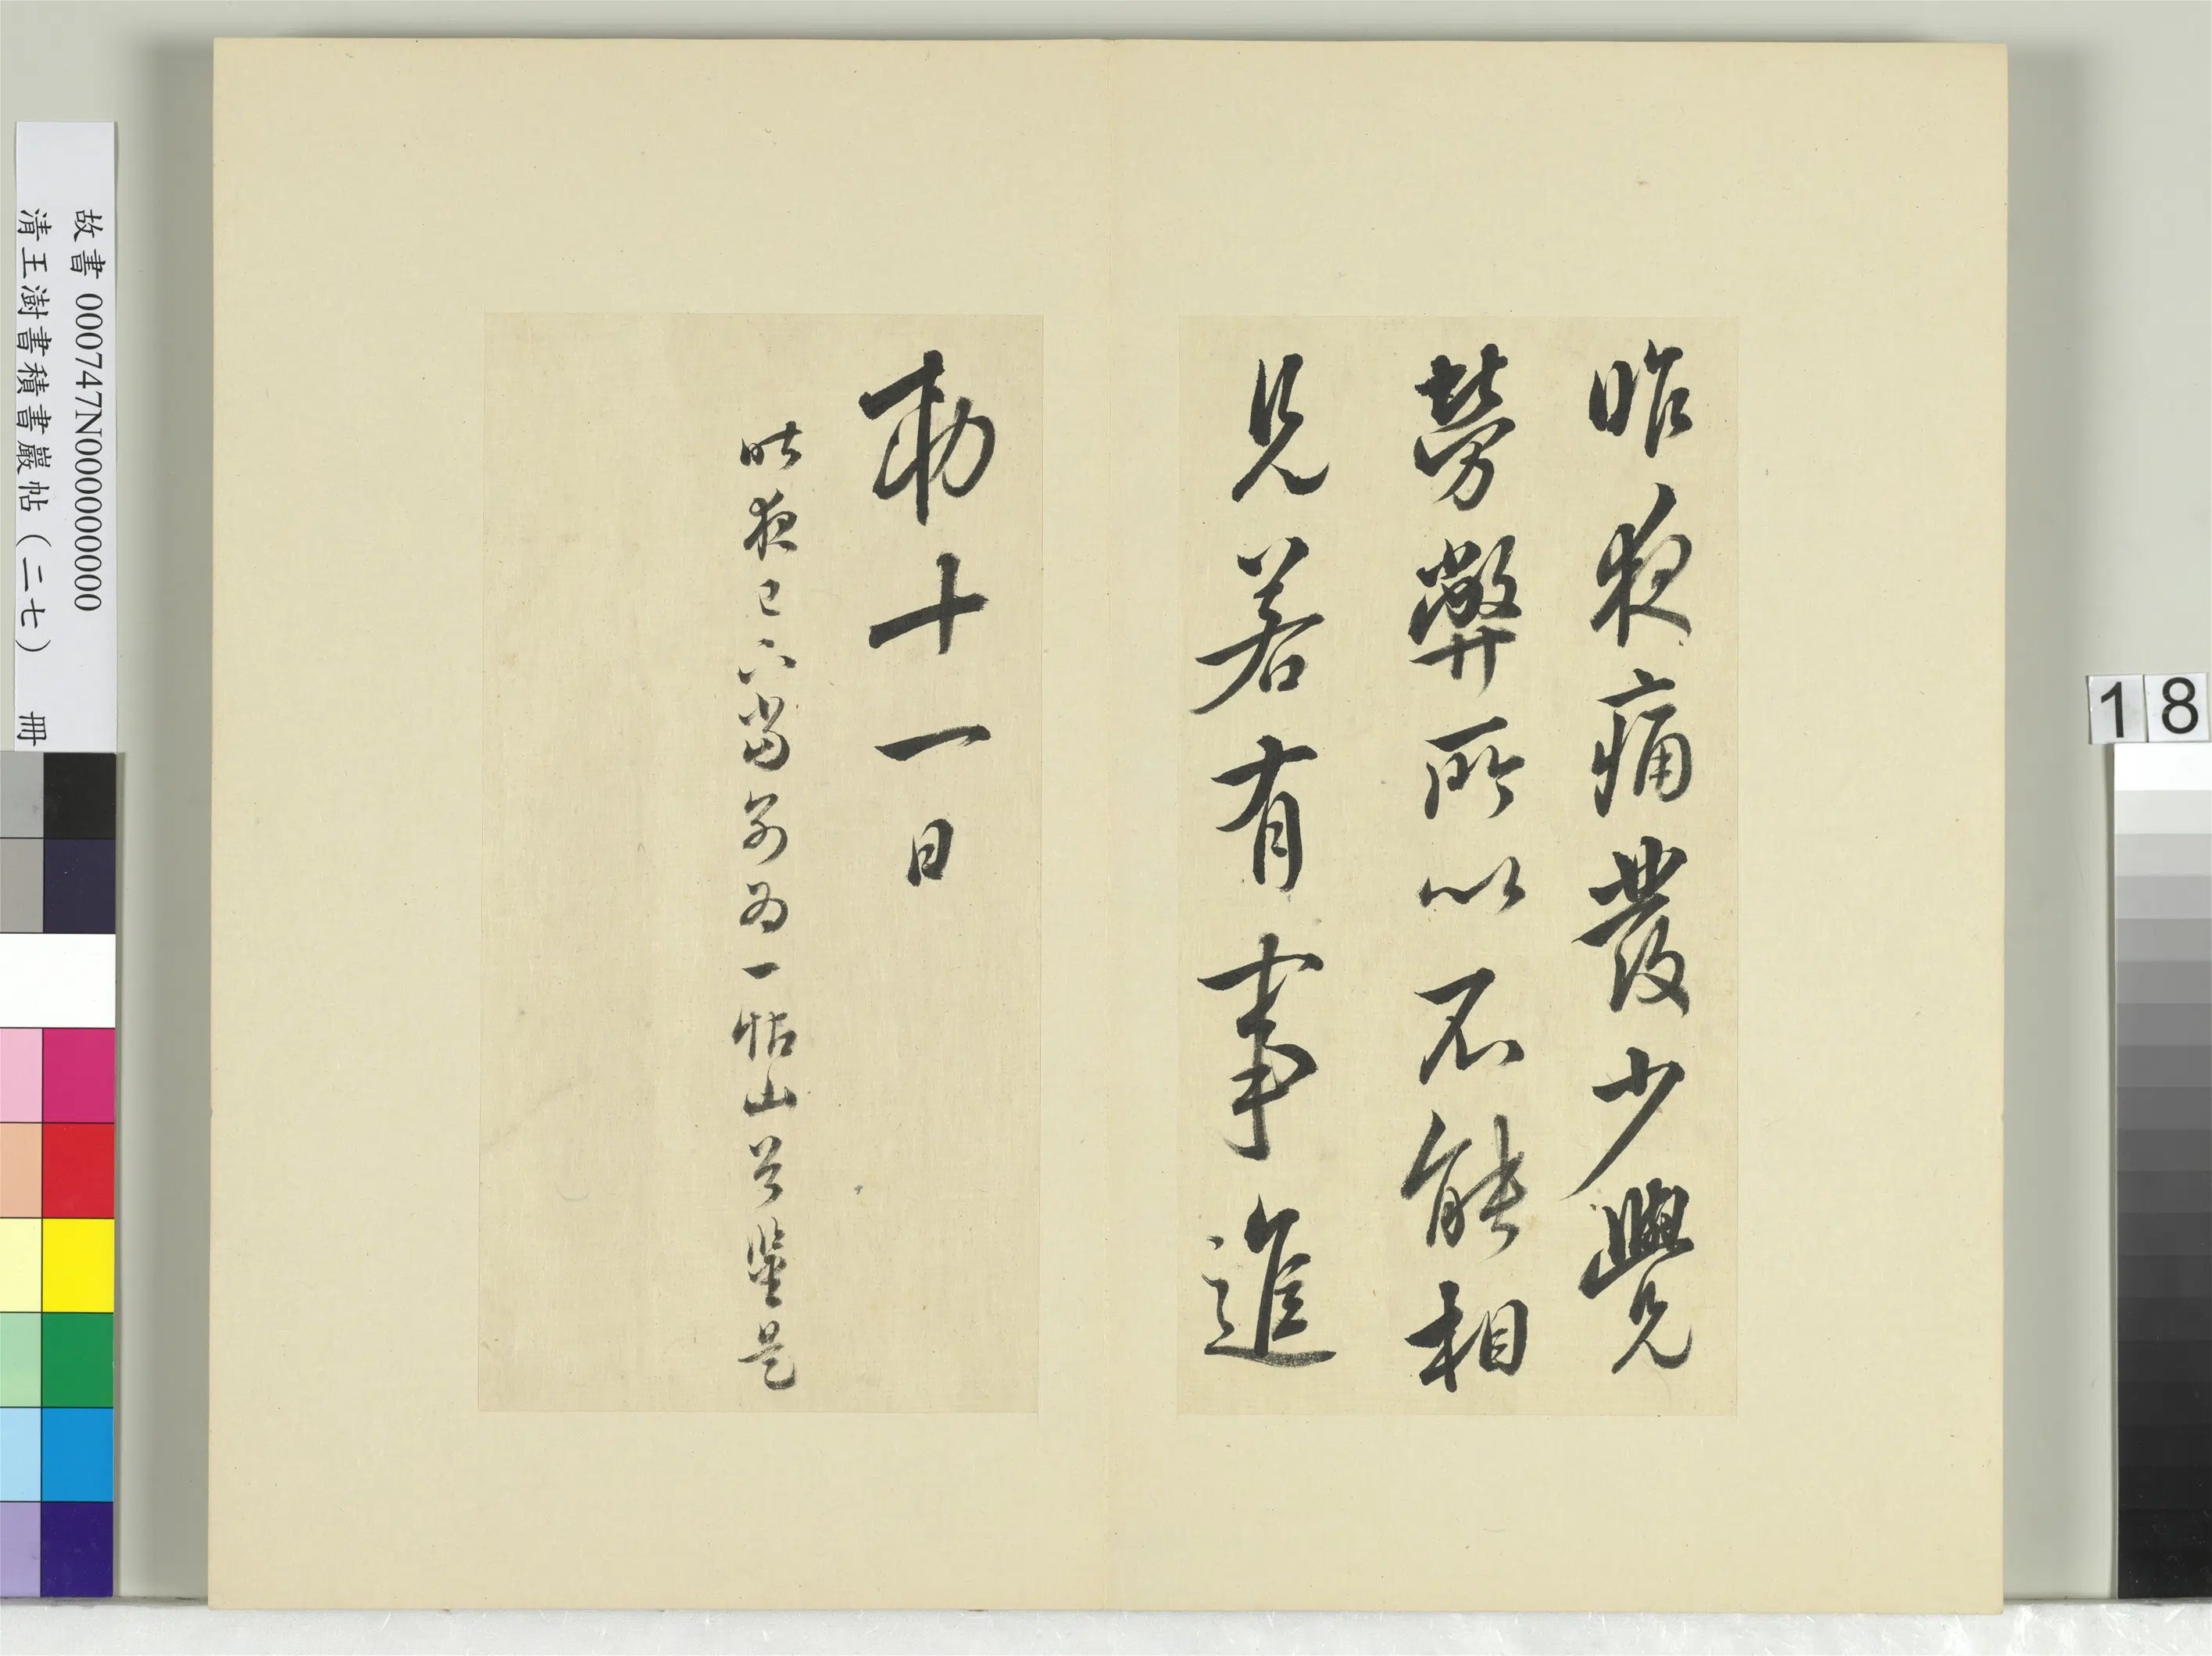 昨夜痛發少覺
勞弊所以不能相
見若有事進
勑十一日
昨夜已下當別為一帖山谷鑒是
故書 000747N000000000
清王澍書積書巖帖（二七） 冊
18